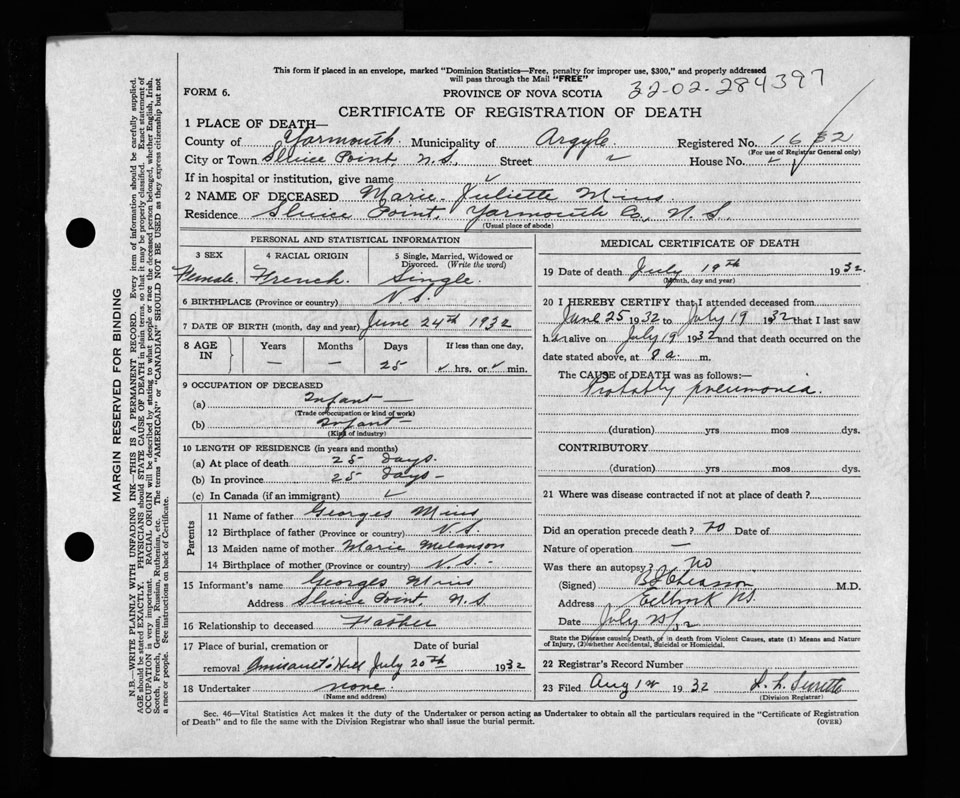 This form if placed in an envelope, marked "Dominion Statistics—Free, penalty for improper use, $300," and properly addressed
will pass through the Mail "FREE"
FORM 6. PROVINCE OF NOVA SCOTIA 32-02-284397
CERTIFICATE OF REGISTRATION OF DEATH
1 PLACE OF DEATH—
County of Yarmouth. Municipality of Argyle Registered No. 1632
(For use of Registrar General only)
City or Town Sluice Point, N.S. Street ✓ House No. ✓
If in hospital or institution, give name ✓
2 NAME OF DECEASED Marie Juliette Mius
Residence Sluice Point, Yarmouth Co., N.S.
(Usual place of abode)
PERSONAL AND STATISTICAL INFORMATION
3 SEX 4 RACIAL ORIGIN 5 Single, Married, Widowed or
Divorced. (Write the word)
Female. French. Single.
6 BIRTHPLACE (Province or country) N.S.
7 DATE OF BIRTH (month, day and year) June 24th 1932
8 AGE IN Years Months Days If less than one day,
— — 25 ✓ hrs. or ✓ min.
9 OCCUPATION OF DECEASED
(a) Infant —
(Trade or occupation or kind of work)
(b) Infant —
(Kind of industry)
10 LENGTH OF RESIDENCE (in years and months)
(a) At place of death 25 days.
(b) In province 25 days —
(c) In Canada (if an immigrant) ✓
Parents
11 Name of father Georges Mius
12 Birthplace of father (Province or country) N.S.
13 Maiden name of mother Marie Melanson
14 Birthplace of mother (Province or country) N.S. -
15 Informant's name Georges Mius
Address Sluice Point, N.S
16 Relationship to deceased Father
17 Place of burial, cremation or Date of burial
removal Hill July 20th 1932
18 Undertaker none.
(Name and address)
MEDICAL CERTIFICATE OF DEATH
19 Date of death July 19th 1932.
(Month, day and year)
20 I HEREBY CERTIFY that I attended deceased from
June 25 1932 to July 19 1932 that I last saw
her alive on July 19 1932 and that death occurred on the
date stated above, at 8 a. m.
The CAUSE of DEATH was as follows:—
Probably pneumonia.
(duration) yrs mos dys.
CONTRIBUTORY
(duration) yrs mos dys.
21 Where was disease contracted if not at place of death?
Did an operation precede death? no Date of
Nature of operation —
Was there an autopsy? no
(Signed) M.D.
Address Eelbrook N.S.
Date July 25/32
State the Disease causing Death, or in death from Violent Causes, state (1) Means and Nature
of Injury, (2) whether Accidental, Suicidal or Homicidal.
22 Registrar's Record Number
23 Filed Aug 1st 1932 L. L. Surette
(Division Registrar)
Sec. 46—Vital Statistics Act makes it the duty of the Undertaker or person acting as Undertaker to obtain all the particulars required in the "Certificate of Registration
of Death" and to file the same with the Division Registrar who shall issue the burial permit. (OVER)
MARGIN RESERVED FOR BINDING
N.B.—WRITE PLAINLY WITH UNFADING INK—THIS IS A PERMANENT RECORD. Every item of information should be carefully supplied.
AGE should be stated EXACTLY. PHYSICIANS should STATE CAUSE OF DEATH in plain terms, so that it may be properly classified. Exact statement of
OCCUPATION is very important. RACIAL ORIGIN will be described by stating to what people or race the deceased person belonged, whether English, Irish,
Scotch, French, German, Russian, Ruthenian, etc. The terms "AMERICAN" or "CANADIAN" SHOULD NOT BE USED as they express citizenship but not
a race or people. See instructions on back of Certificate.